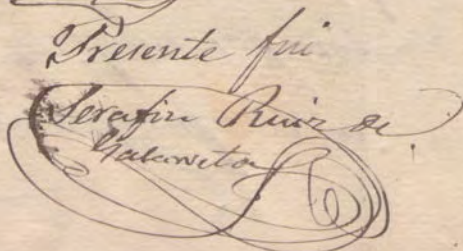 Presente fui
Serafin Ruiz de
Galarreta